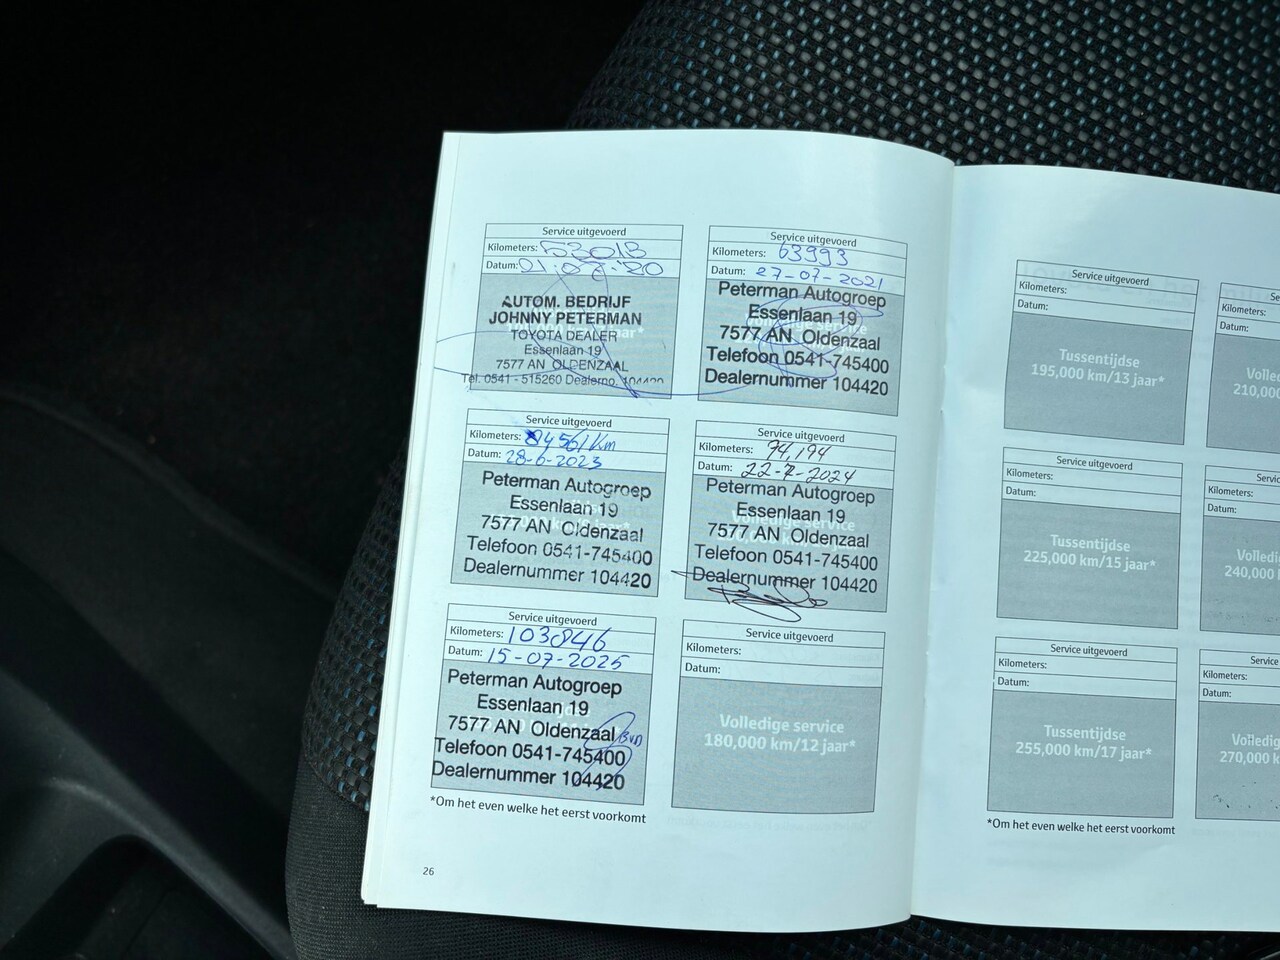 Service uitgevoerd
Kilometers: 53018
Datum: 01-07-'20
AUTOM. BEDRIJF
JOHNNY PETERMAN
TOYOTA DEALER
Essenlaan 19
7577 AN OLDENZAAL
Tel. 0541 - 515260 Dealerno. 104420
Service uitgevoerd
Kilometers: 63993
Datum: 27-07-2021
Peterman Autogroep
Essenlaan 19
7577 AN Oldenzaal
Telefoon 0541-745400
Dealernummer 104420
Service uitgevoerd
Kilometers: 84561 km
Datum: 28-6-2023
Peterman Autogroep
Essenlaan 19
7577 AN Oldenzaal
Telefoon 0541-745400
Dealernummer 104420
Service uitgevoerd
Kilometers: 94,194
Datum: 22-7-2024
Peterman Autogroep
Essenlaan 19
7577 AN Oldenzaal
Telefoon 0541-745400
Dealernummer 104420
Service uitgevoerd
Kilometers: 103846
Datum: 15-07-2025
Peterman Autogroep
Essenlaan 19
7577 AN Oldenzaal
Telefoon 0541-745400
Dealernummer 104420
Service uitgevoerd
Kilometers:
Datum:
Volledige service
180,000 km/12 jaar*
*Om het even welke het eerst voorkomt
26
Service uitgevoerd
Kilometers:
Datum:
Tussentijdse
195,000 km/13 jaar*
Kilometers:
Datum:
210,000
Service uitgevoerd
Kilometers:
Datum:
Tussentijdse
225,000 km/15 jaar*
Kilometers:
Datum:
240,000
Service uitgevoerd
Kilometers:
Datum:
Tussentijdse
255,000 km/17 jaar*
Service
Kilometers:
Datum:
270,000
*Om het even welke het eerst voorkomt